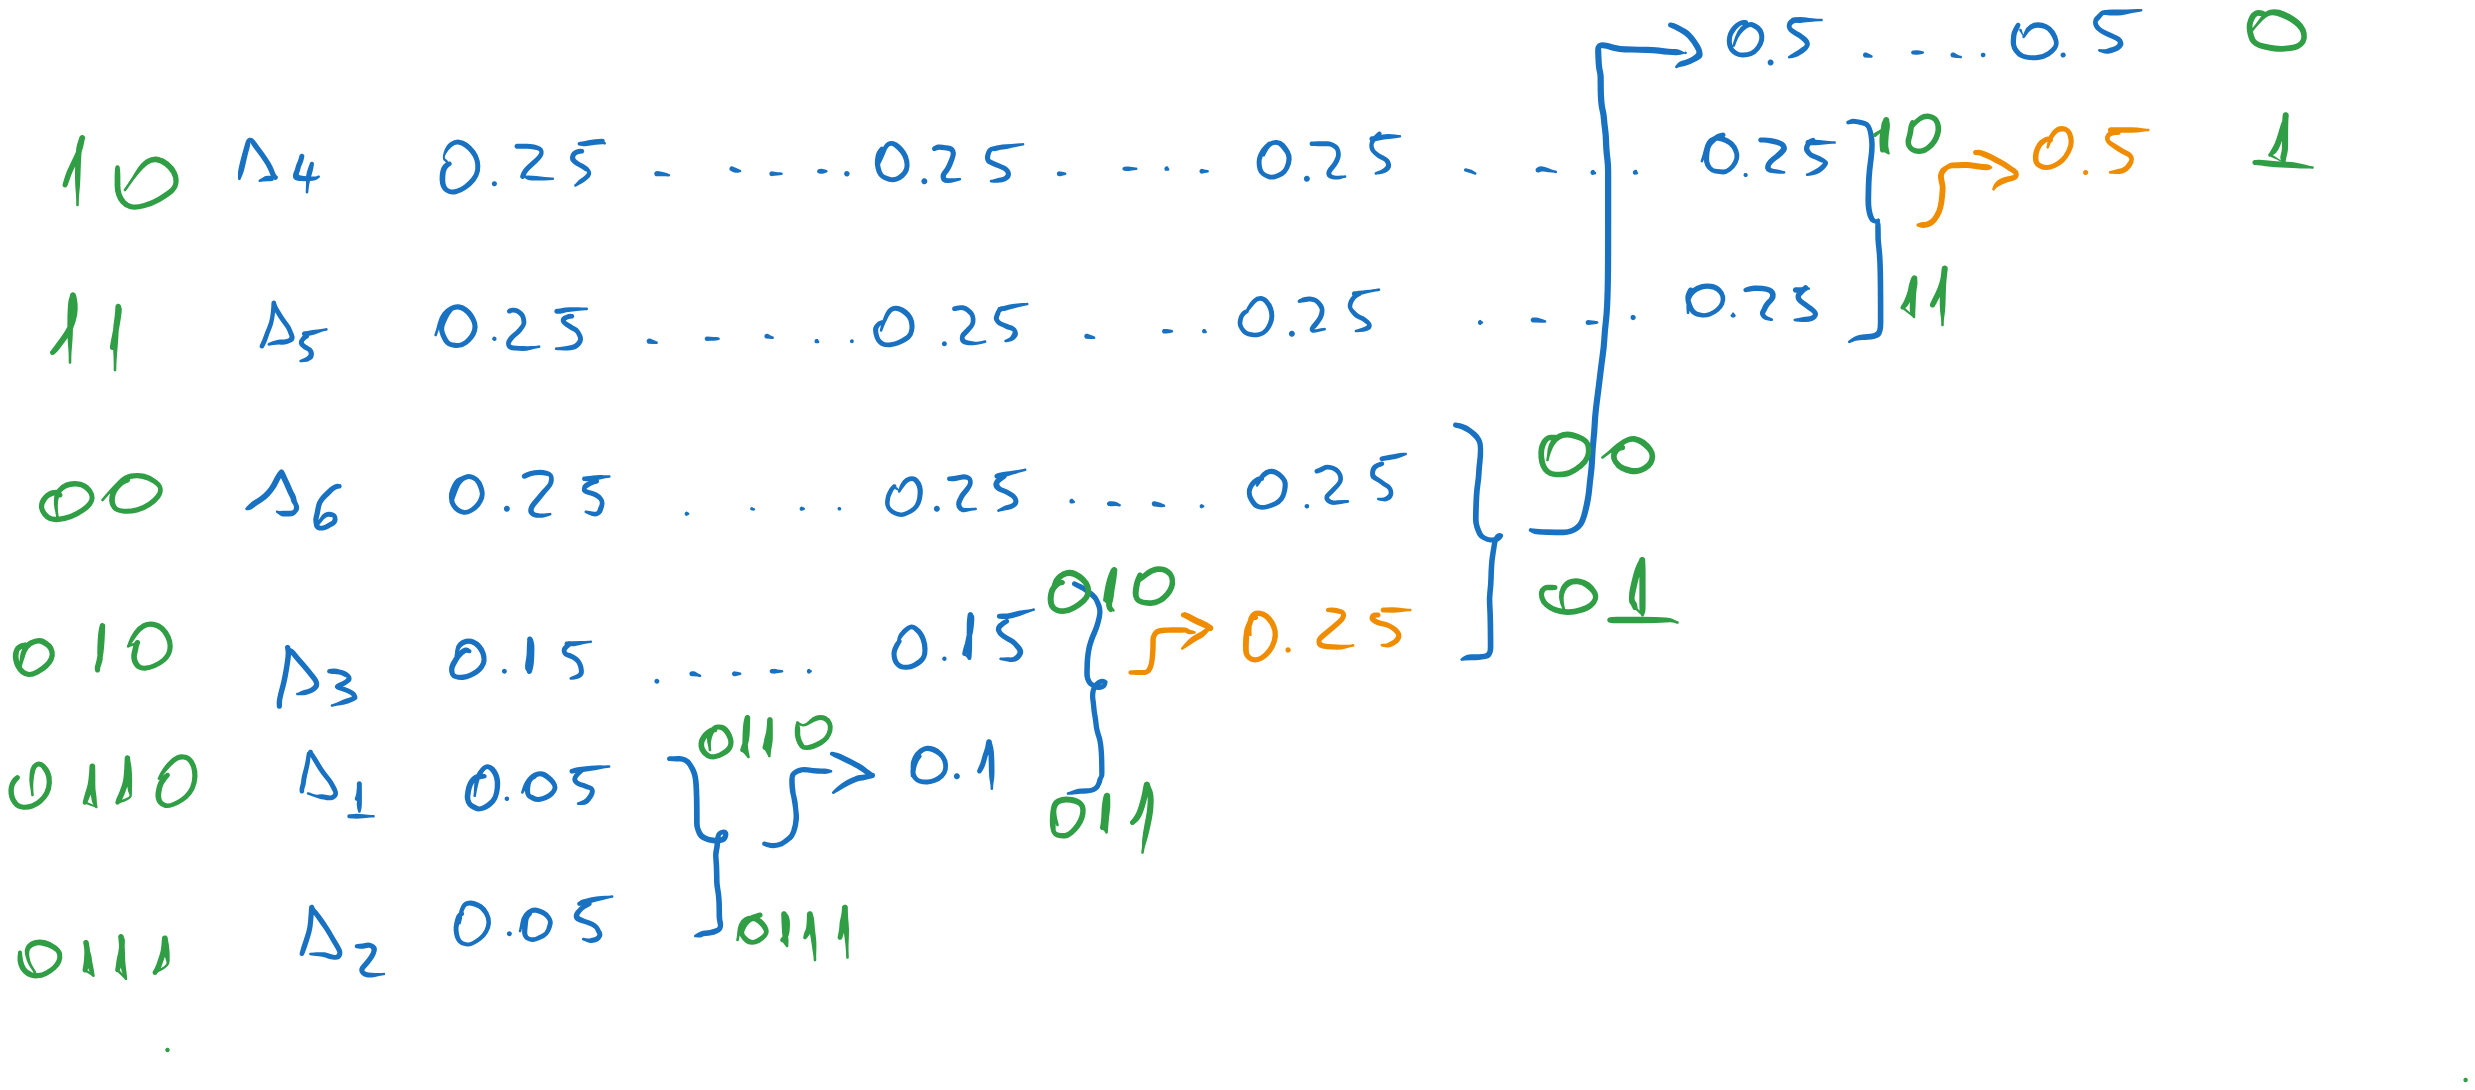 0.5 . - - . 0.5 0
10 Δ4 0.25 - - - - . 0.25 - - - - 0.25 - - . . 0.25 10 0.5 1
11 Δ5 0.25 - - - . . 0.25 - - . 0.25 . - - . 0.25 11
00 Δ6 0.25 . . . . 0.25 . - - . 0.25 00
010 Δ3 0.15 . - - - . 0.15 010 0.25 01
0110 Δ1 0.05 0110 0.1 011
0111 Δ2 0.05 0111